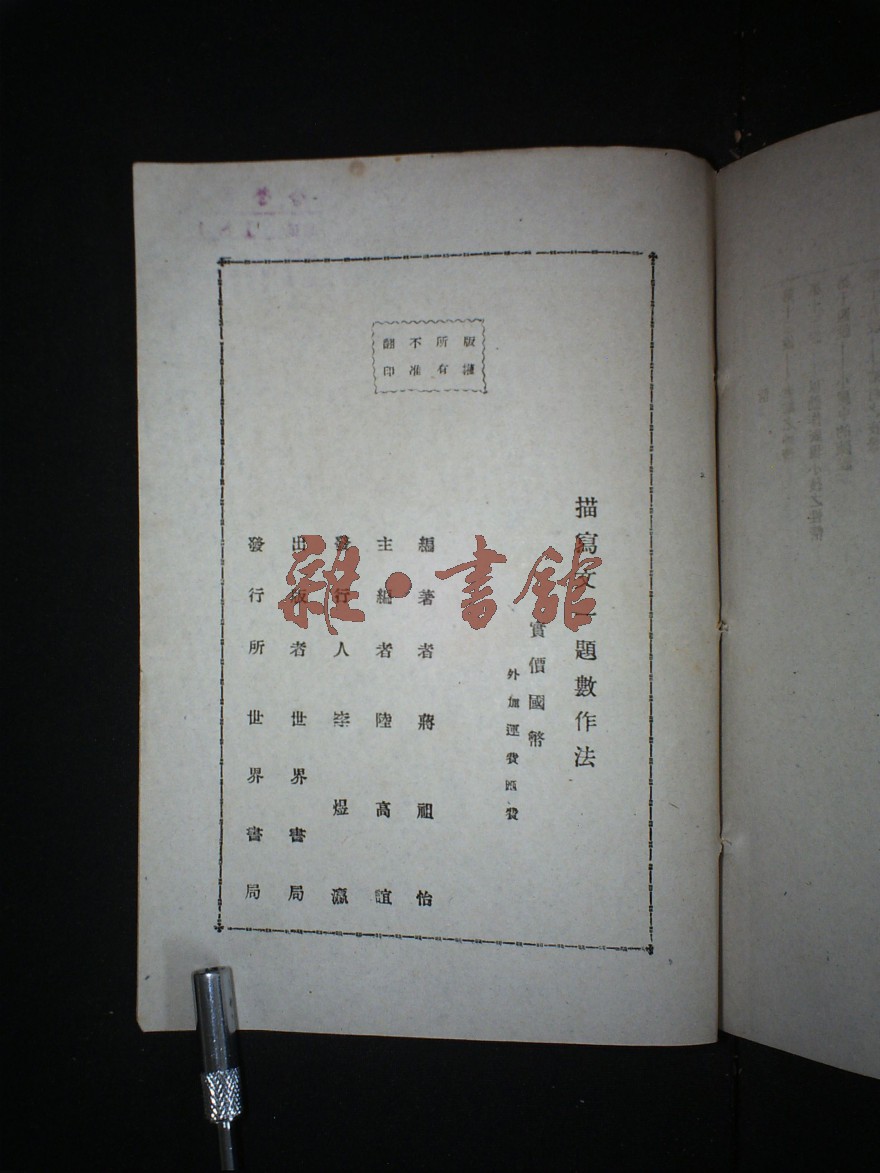 版權
所有
不准
翻印
描寫文一題數作法
實價國幣
外加運費匯費
編著者 蔣祖怡
主編者 陸高誼
發行人 李煜瀛
出版者 世界書局
發行所 世界書局
雜·書館